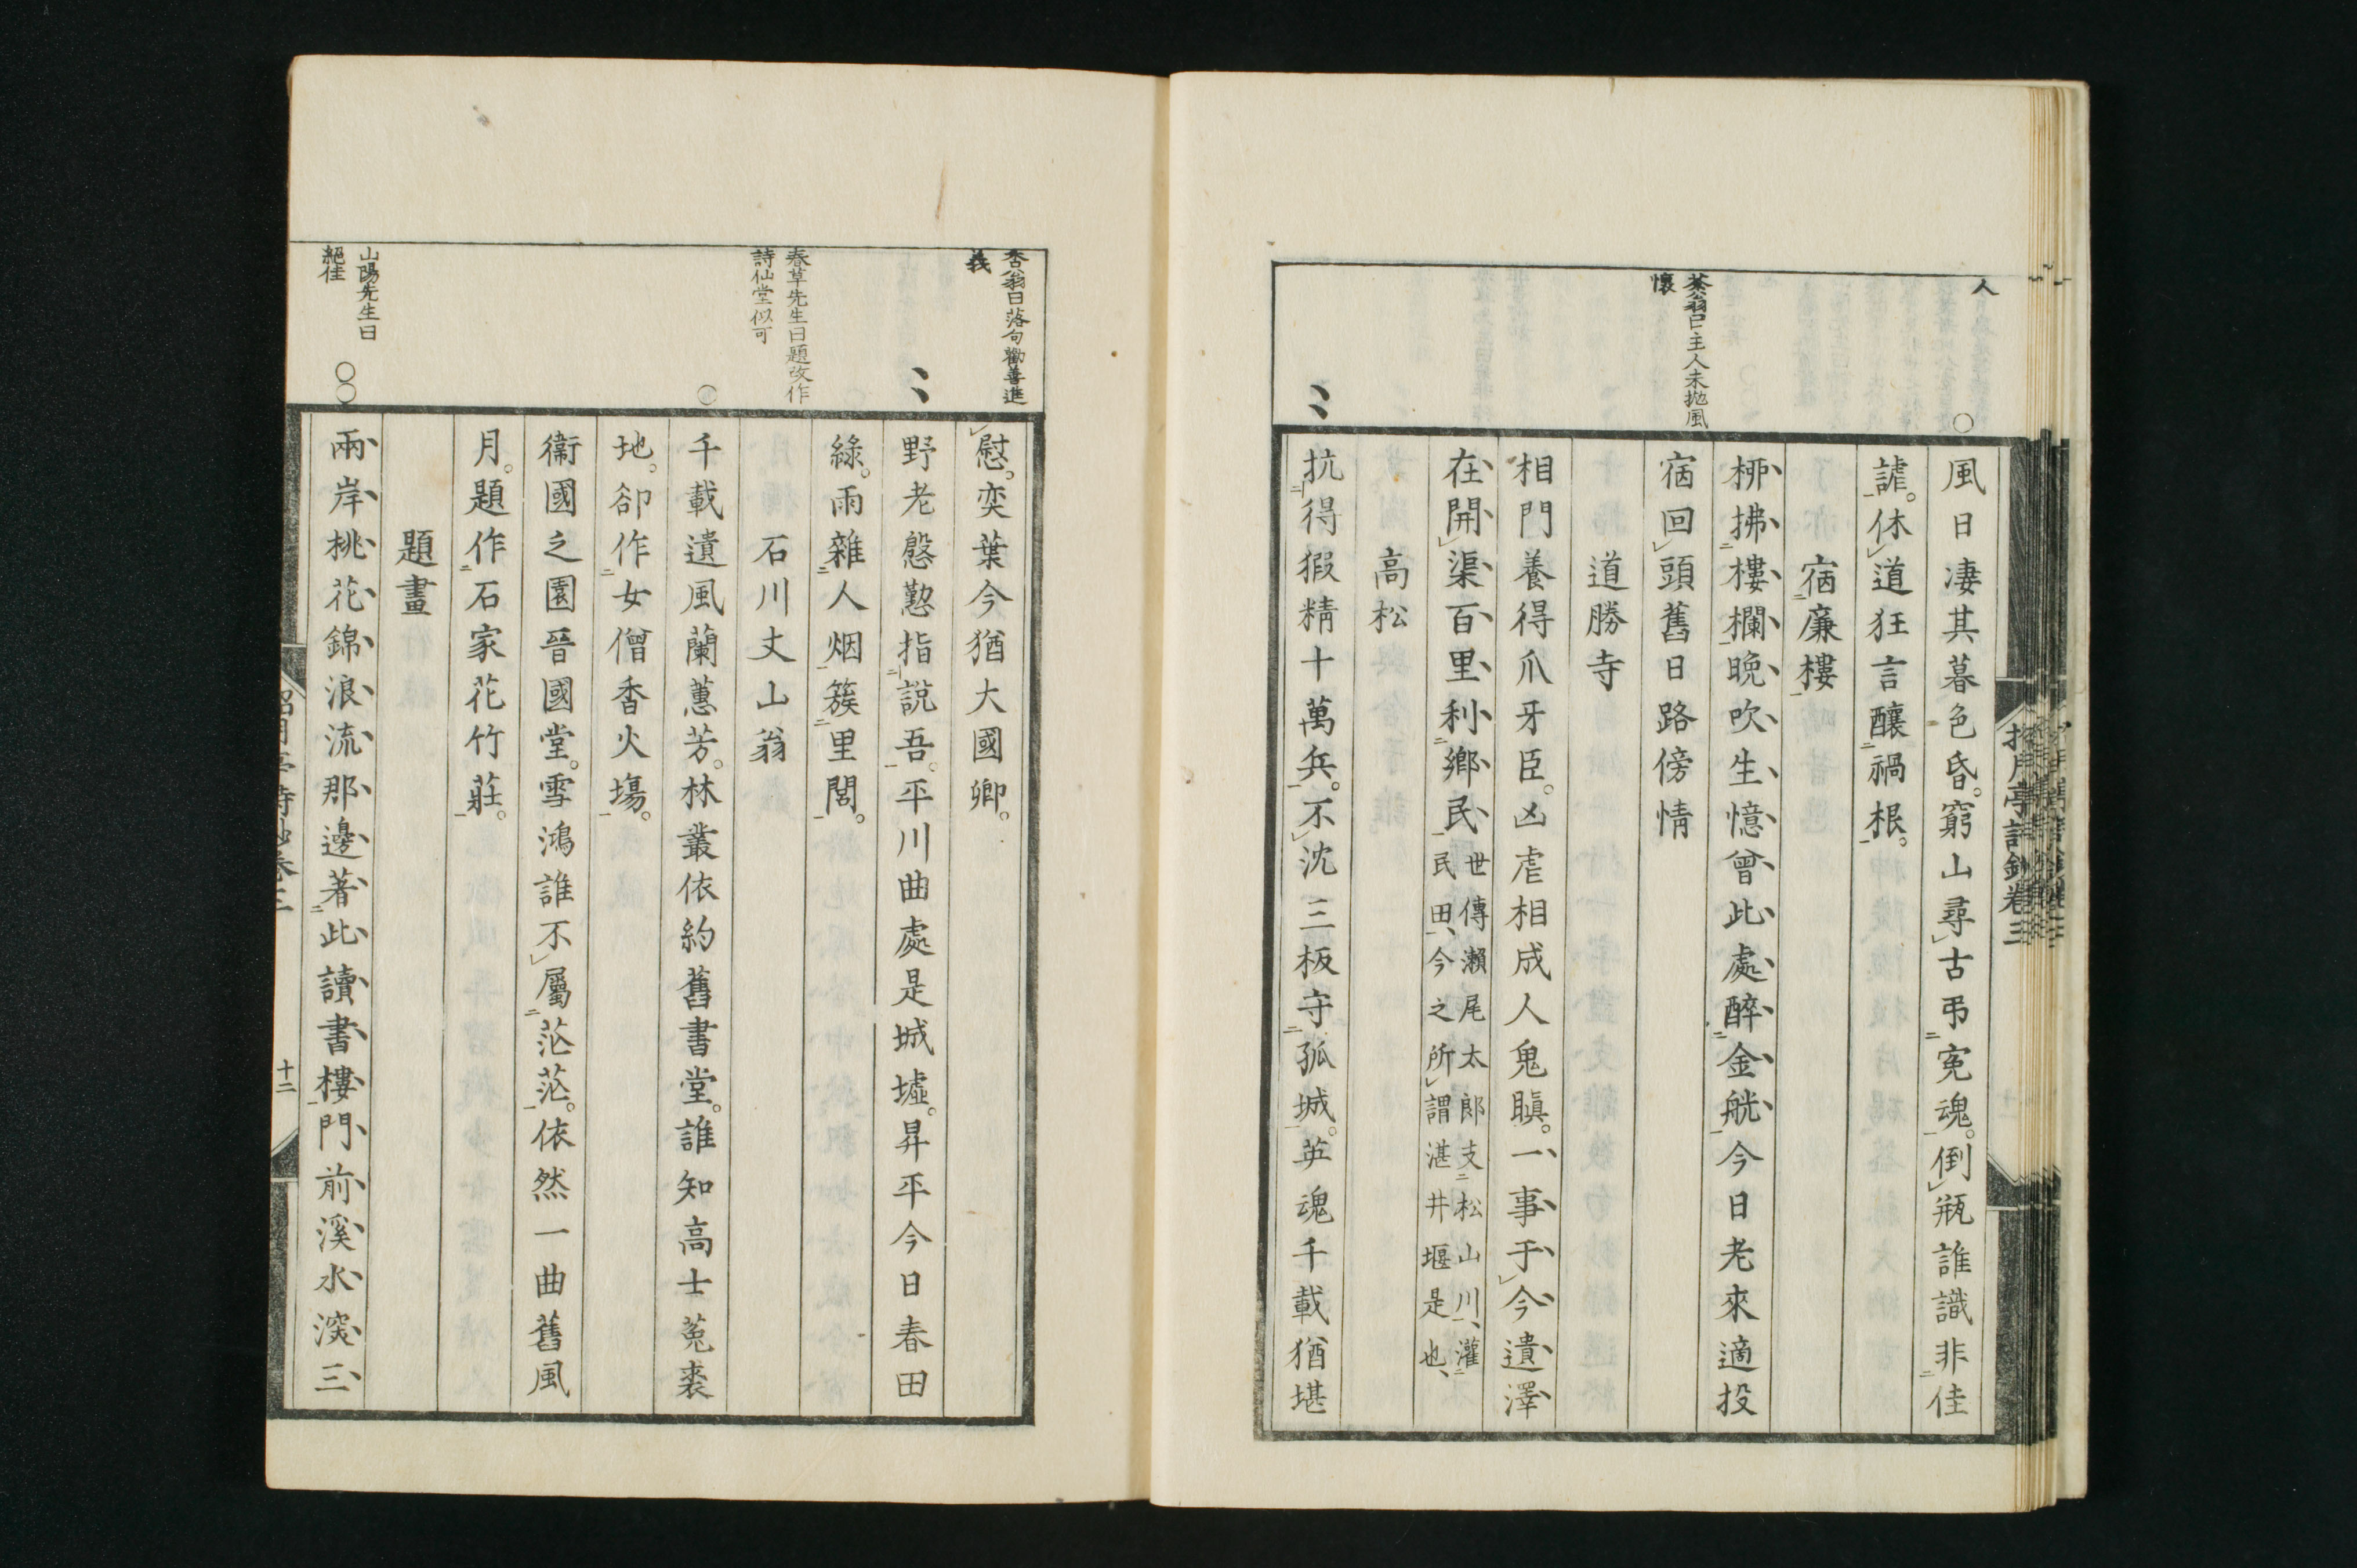 人
風日凄其暮色昏。窮山尋古弔寃魂。倒瓶誰識非佳
謔。休道狂言釀禍根。
宿廉樓
茶翁曰主人未拋風
懷
柳拂樓欄晩吹生憶曾此處醉金觥今日老來適投
宿回頭舊日路傍情
道勝寺
相門養得爪牙臣。凶虐相成人鬼瞋。一事于今遺澤
在開渠百里利鄕民
世傳瀨尾太郎支松山川、灌
民田、今之所謂湛井堰是也、
高松
抗得猳精十萬兵。不沈三板守孤城。英魂千載猶堪
招月亭詩鈔卷三
杏翁曰落句勸善進
義
慰。奕葉今猶大國卿。
野老慇懃指說吾。平川曲處是城墟。昇平今日春田
綠。雨雜人烟簇里閭。
春草先生曰題改作
詩仙堂似可
石川丈山翁
千載遺風蘭蕙芳。林叢依約舊書堂。誰知高士菟裘
地。卻作女僧香火塲。
衞國之園晉國堂。雪鴻誰不屬茫茫。依然一曲舊風
月。題作石家花竹莊。
題畫
山陽先生曰
絕佳
兩岸桃花錦浪流那邊著此讀書樓門前溪水深三
招月亭詩鈔卷三
十二